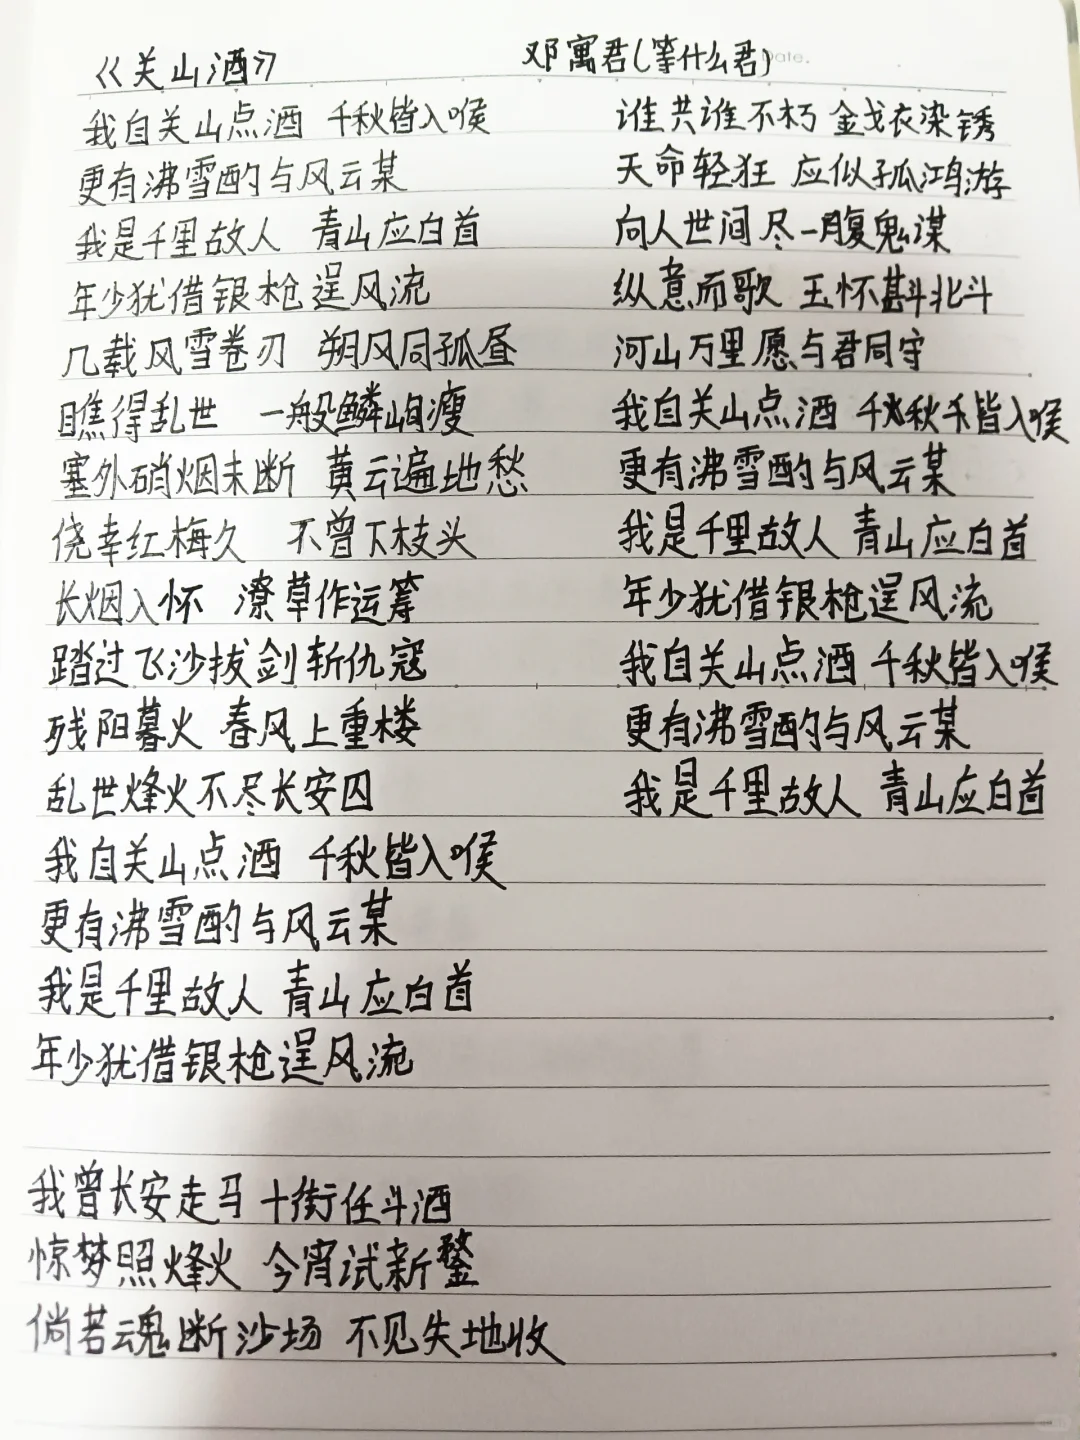 《关山酒》 邓寓君(等什么君)
Date.
我自关山点酒 千秋皆入喉
更有沸雪酌与风云某
我是千里故人 青山应白首
年少犹借银枪逞风流
几载风雪卷刃 朔风同孤昼
瞧得乱世 一般鳞峋瘦
塞外硝烟未断 黄云遍地愁
侥幸红梅久 不曾下枝头
长烟入怀 潦草作运筹
踏过飞沙拔剑斩仇寇
残阳暮火 春风上重楼
乱世烽火不尽长安囚
我自关山点酒 千秋皆入喉
更有沸雪酌与风云某
我是千里故人 青山应白首
年少犹借银枪逞风流
我曾长安走马 十街任斗酒
惊梦照烽火 今宵试新鍪
倘若魂断沙场 不见失地收
谁共谁不朽 金戈衣染锈
天命轻狂 应似孤鸿游
向人世间尽一腹鬼谋
纵意而歌 玉怀斟北斗
河山万里愿与君同守
我自关山点酒 千秋皆入喉
更有沸雪酌与风云某
我是千里故人 青山应白首
年少犹借银枪逞风流
我自关山点酒 千秋皆入喉
更有沸雪酌与风云某
我是千里故人 青山应白首